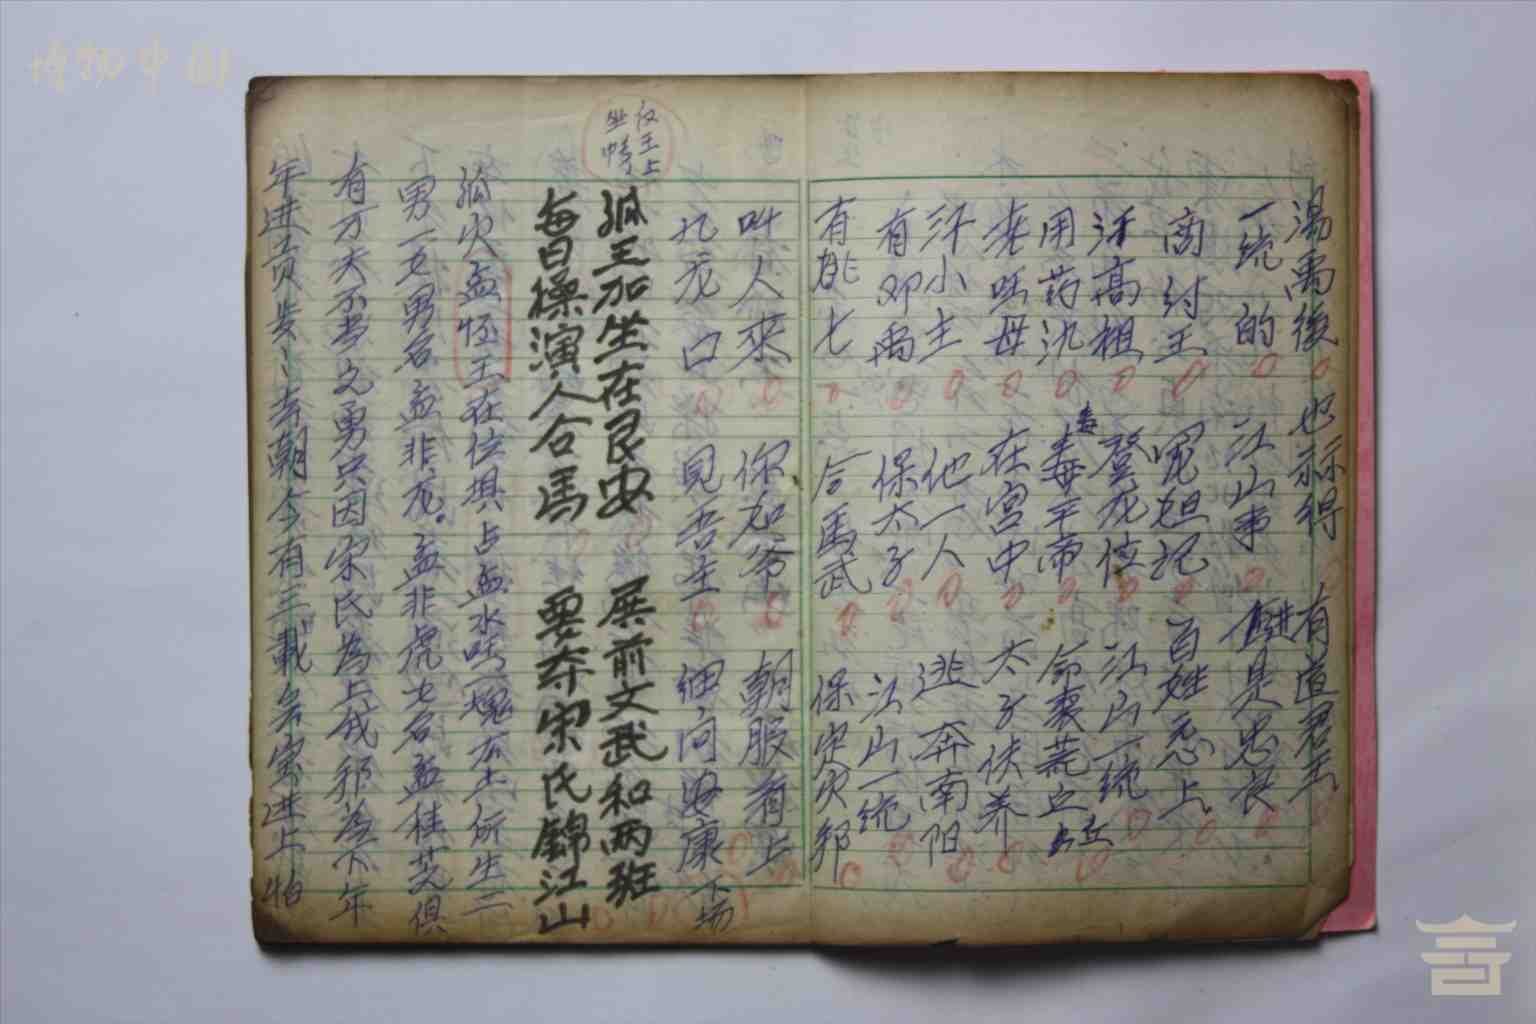 博物中国
湯禹後 也亦得 有道君王
一统的 江山事 也是忠良
商纣王 宠妲己 百姓恶上
汗高祖 登龙位 江山一统
用药汎 毒平帝 命丧荒丘
老吽母 在宫中 太子伕养
汗小主 他一人 逃奔南阳
有邓禹 保太子 江山一统
有姚七 合馬武 保定灾邦
叫人來 你加爷 朝服着上
九龙口 見吾主 细问安康 下场
仅王上
坐帐
孤王加坐在艮安 展前文武和两班
每日操演人合馬 要夺宋氏錦江山
孤火 孟怪王在位 具占孟水吽一塊友土 所生二
男一女男名孟非龙。孟非虎女名孟桂芝 俱
有万夫不当之勇只因宋氏為上我邦為下年
年進贡岁丶 朝今有三載 進上怕